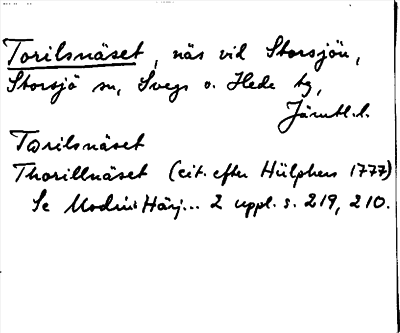 Torilsnäset, näs vid Storsjön,
Storsjö sn, Svegs o. Hede tg,
Jämtl. l.
Torilsnäset
Thorillnäset (cit. efter Hülphers 1777)
Se Modin: Härj... 2 uppl. s. 219, 210.